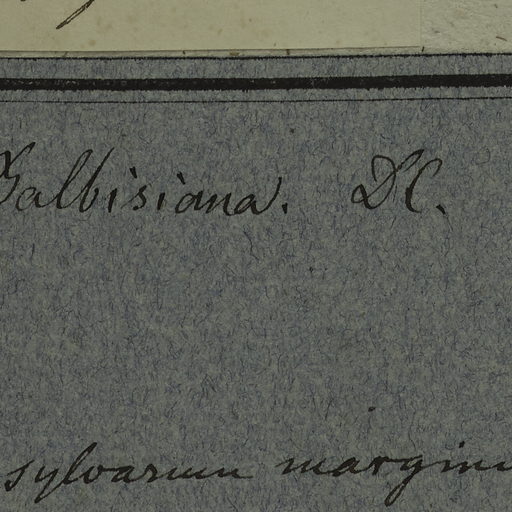 Balbisiana. DC.
sylvarum margin